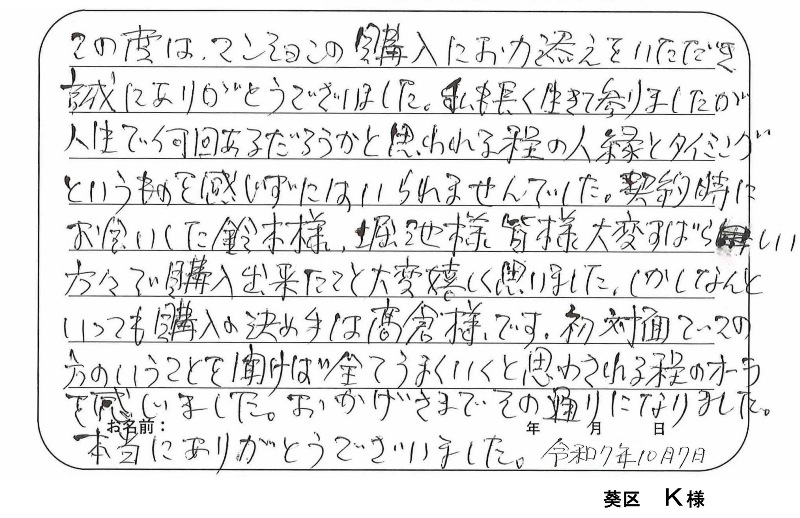 この度は、マンションの購入にお力添えをいただき
誠にありがとうございました。私も長く生きて参りましたが
人生で何回あるだろうかと思われる程の人縁とタイミング
というものを感じずにはいられませんでした。契約時に
お会いした鈴木様、堀池様皆様大変すばらしい
方々で購入出来たこと大変嬉しく思いました。しかしなんと
いっても購入の決め手は髙倉様です。初対面でこの
方のいうことを聞けば全てうまくいくと思わされる程のオーラ
を感じました。おかげさまでその通りになりました。
お名前： 年 月 日
本当にありがとうございました。令和7年10月7日
葵区 K様